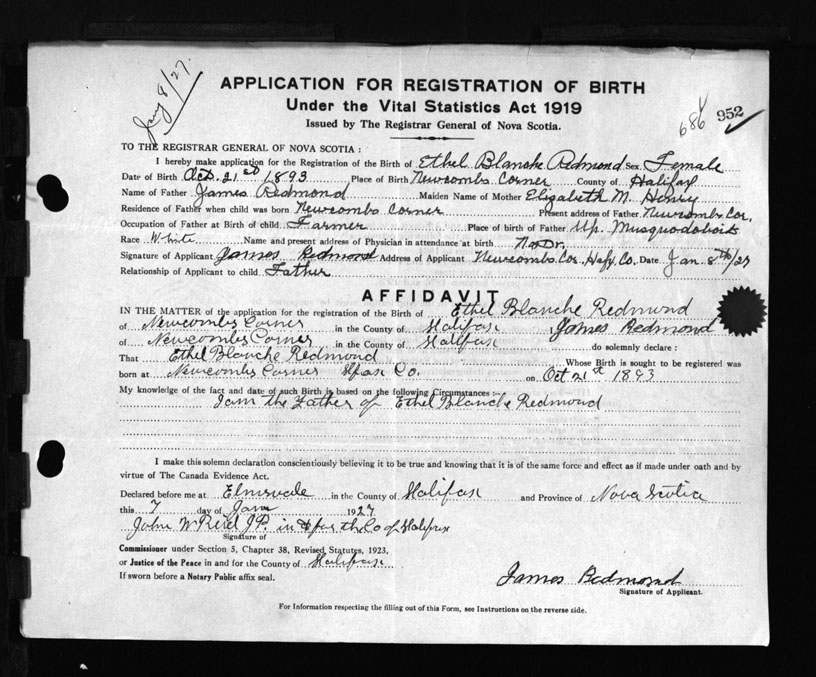 Jany 8/27.
APPLICATION FOR REGISTRATION OF BIRTH
Under the Vital Statistics Act 1919
Issued by The Registrar General of Nova Scotia.
686 952
TO THE REGISTRAR GENERAL OF NOVA SCOTIA :
I hereby make application for the Registration of the Birth of Ethel Blanche Redmond Sex Female
Date of Birth Oct. 21st 1893 Place of Birth Newcombs Corner County of Halifax
Name of Father James Redmond Maiden Name of Mother Elizabeth M. Henry
Residence of Father when child was born Newcombs Corner Present address of Father Newcombs Cor.
Occupation of Father at Birth of child Farmer Place of birth of Father Up. Musquodoboit
Race White Name and present address of Physician in attendance at birth No Dr.
Signature of Applicant James Redmond Address of Applicant Newcombs Cor. Hfx. Co. Date Jan 8th/27
Relationship of Applicant to child Father
AFFIDAVIT
IN THE MATTER of the application for the registration of the Birth of Ethel Blanche Redmond
of Newcombs Corner in the County of Halifax James Redmond
of Newcombs Corner in the County of Halifax do solemnly declare :
That Ethel Blanche Redmond Whose Birth is sought to be registered was
born at Newcombs Corner Hfax Co. on Oct 21st 1893
My knowledge of the fact and date of such Birth is based on the following Circumstances :-
I am the Father of Ethel Blanche Redmond
I make this solemn declaration conscientiously believing it to be true and knowing that it is of the same force and effect as if made under oath and by
virtue of The Canada Evidence Act.
Declared before me at Elmsvale in the County of Halifax and Province of Nova Scotia
this 7 day of Jan 1927
John W Reid J.P. in & for the Co of Halifax
Signature of
Commissioner under Section 5, Chapter 38, Revised Statutes, 1923,
or Justice of the Peace in and for the County of Halifax
If sworn before a Notary Public affix seal.
James Redmond
Signature of Applicant.
For Information respecting the filling out of this Form, see Instructions on the reverse side.